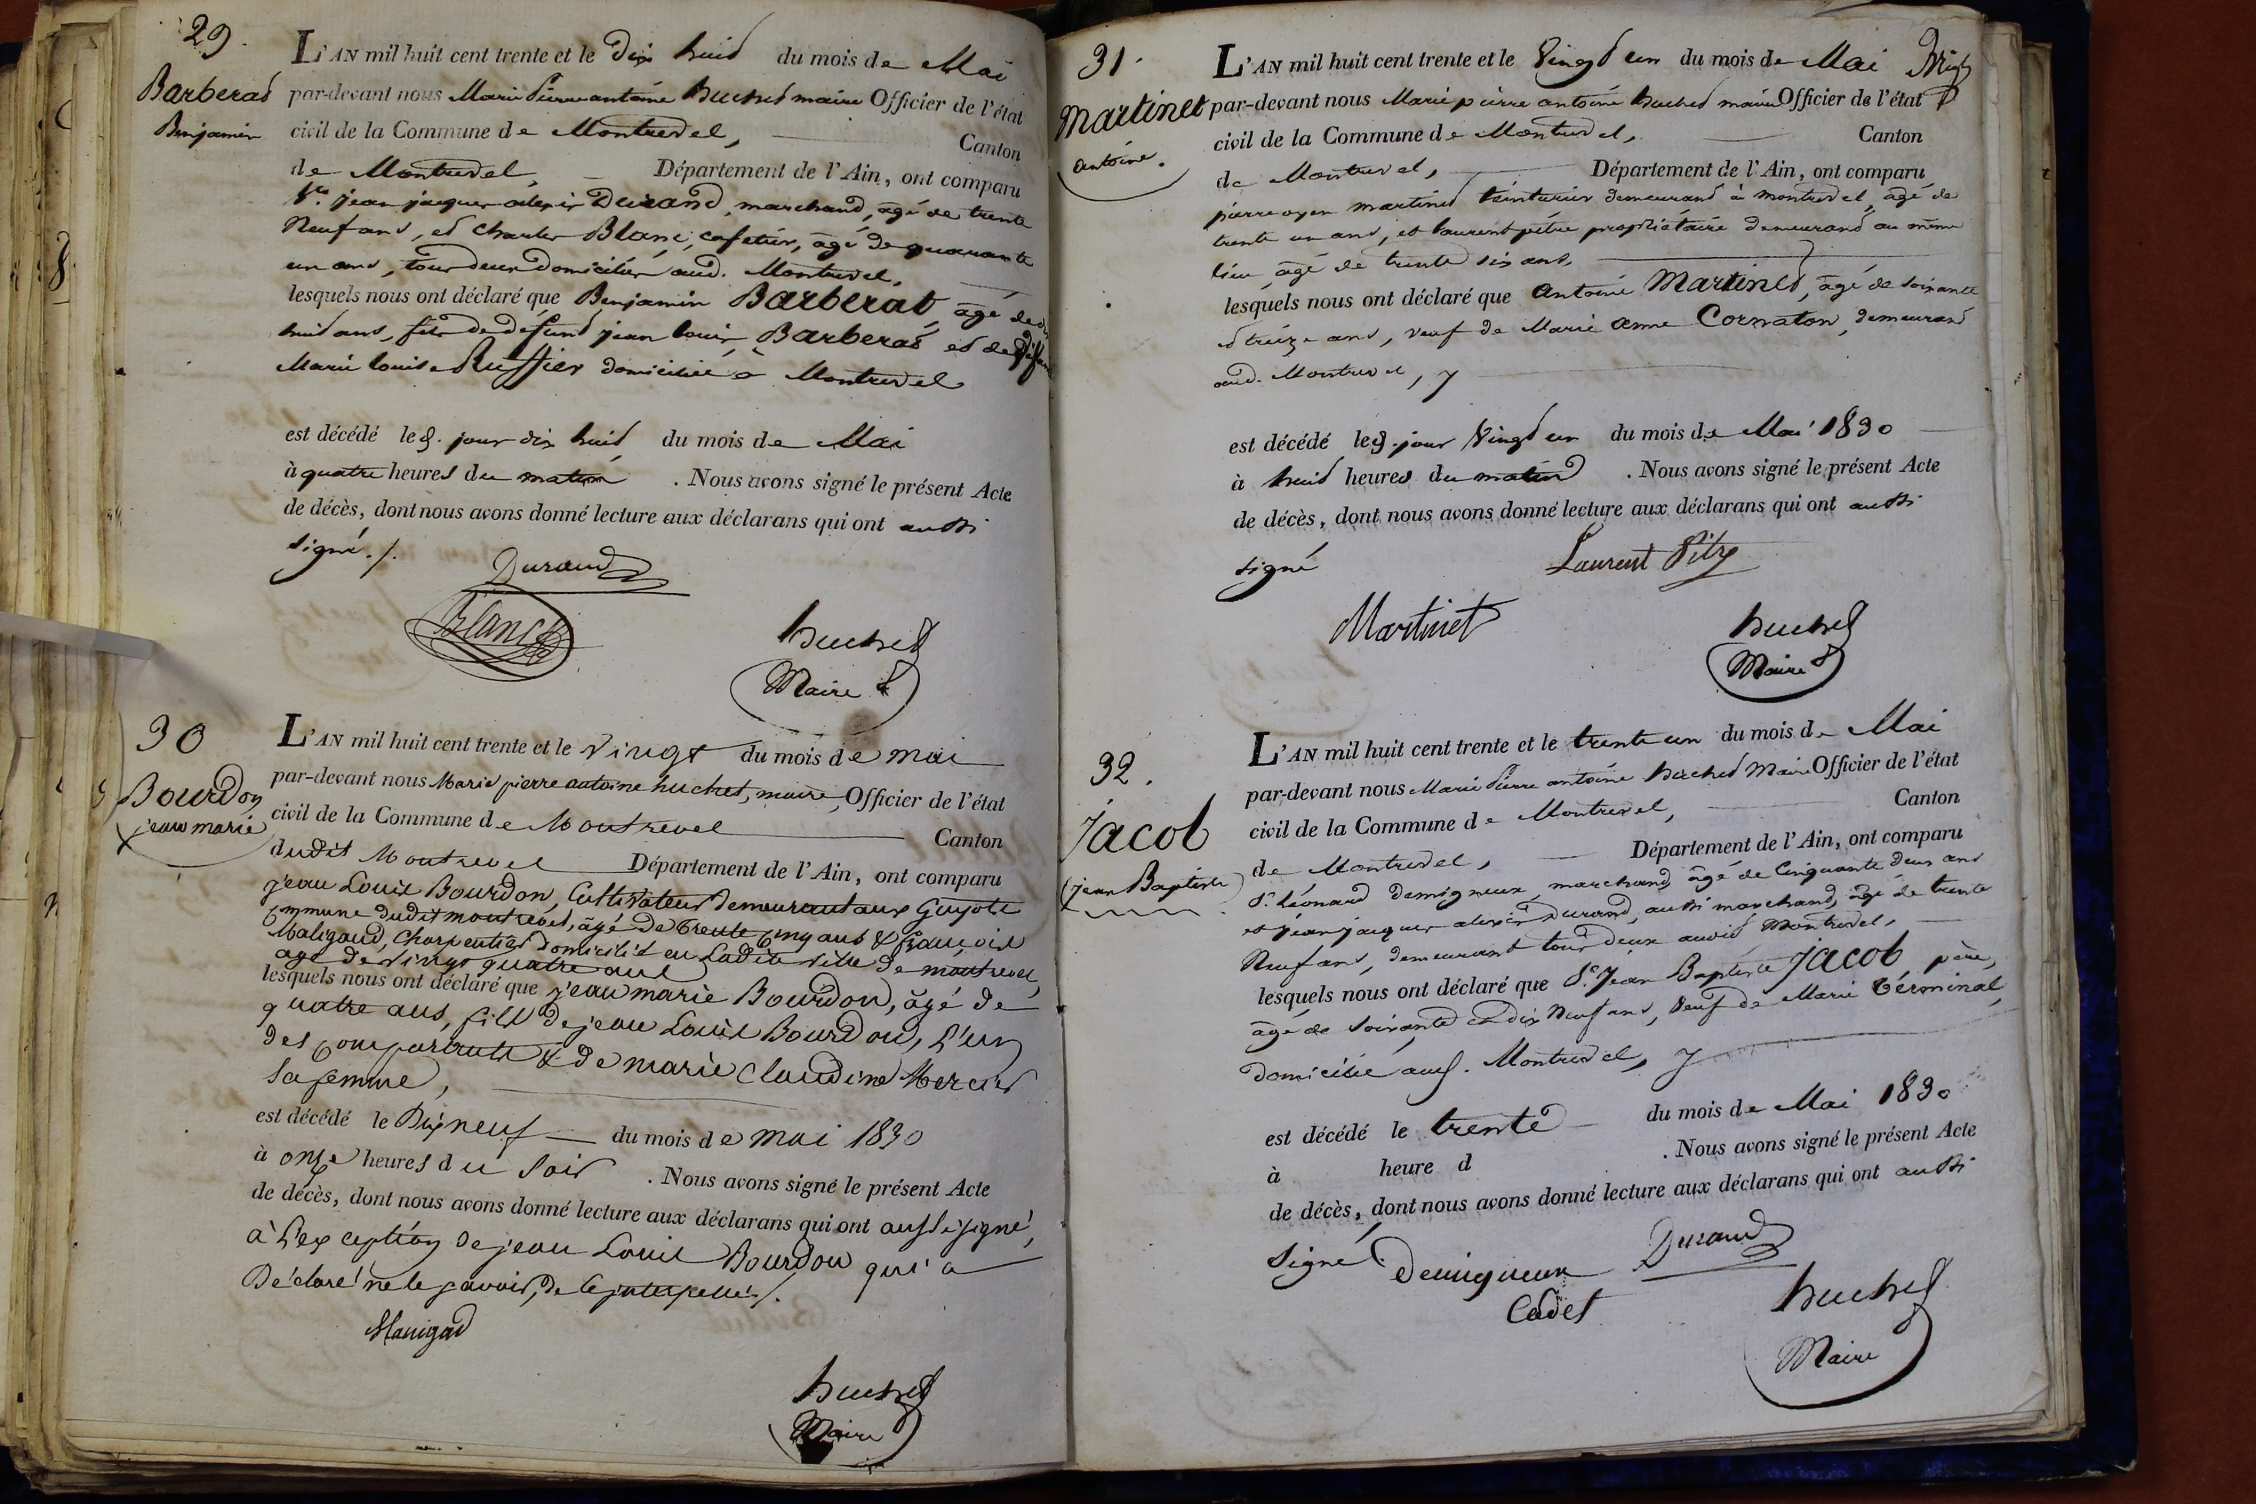 29.
Barberat
Benjamin
L'AN mil huit cent trente et le dix huit du mois de Mai
par-devant nous Marie Pierre antoine huchet maire Officier de l'état
civil de la Commune de Montrevel, Canton
de Montrevel, Département de l'Ain, ont comparu
Srs jean jacques alexis Durand, marchand, âgé de trente
Neuf ans, et Charles Blanc, cafetier, âgé de quarante
un ans, tous deux domiciliés aud. Montrevel,
lesquels nous ont déclaré que Benjamin Barberat, âgé de dix
huit ans, fils de défunt jean louis Barberat et de
Marie louise Ruffier domicilié à Montrevel
est décédé led. jour dix huit du mois de Mai
à quatre heures du matin . Nous avons signé le présent Acte
de décès, dont nous avons donné lecture aux déclarans qui ont aussi
signé ./.
Durand
Blanc
huchet
Maire
30
Bourdon
jean marie
L'AN mil huit cent trente et le vingt du mois de mai
par-devant nous Marie pierre antoine huchet, maire, Officier de l'état
civil de la Commune de Montrevel Canton
dudit Montrevel Département de l'Ain, ont comparu
jean Louis Bourdon, Cultivateur demeurant aux Guyots
commune dudit montrevel, âgé de trente cinq ans & françois
Maligaud, Charpentier domicilié en Ladite ville de montrevel,
âgé de vingt quatre ans
lesquels nous ont déclaré que jean marie Bourdon, âgé de
quatre ans, fils de jean Louis Bourdon, l'un
des comparants & de marie Claudine Mercier
sa femme,
est décédé le Dix neuf du mois de mai 1830
à onze heures du soir . Nous avons signé le présent Acte
de décès, dont nous avons donné lecture aux déclarans qui ont aussi signé,
à L'exception de jean Louis Bourdon qui a
Déclaré ne le savoir, de ce interpellé ./.
huchet
Maire
31.
Martinet
antoine.
L'AN mil huit cent trente et le Vingt un du mois de Mai
par-devant nous Marie pierre antoine huchet maire Officier de l'état
civil de la Commune de Montrevel, Canton
de Montrevel, Département de l'Ain, ont comparu
pierre oyen martinet teinturier demeurant à montrevel, âgé de
trente un ans, et laurent pitre propriétaire demeurant au même
lieu âgé de trente six ans,
lesquels nous ont déclaré que antoine Martinet, âgé de soixante
et treize ans, veuf de Marie anne Cornaton, demeurant
aud. Montrevel,
est décédé led. jour Vingt un du mois de Mai 1830
à huit heures du matin . Nous avons signé le présent Acte
de décès, dont nous avons donné lecture aux déclarans qui ont aussi
signé
Laurent Pitre
Martinet
huchet
Maire
32.
Jacob
jean Baptiste
L'AN mil huit cent trente et le trente un du mois de Mai
par-devant nous Marie Pierre antoine huchet Maire Officier de l'état
civil de la Commune de Montrevel, Canton
de Montrevel, Département de l'Ain, ont comparu
Sr. Léonard demigneux, marchand, âgé de Cinquante deux ans
et jean jacques alexis Durand, aussi marchand, âgé de trente
Neuf ans, demeurant tous deux audit Montrevel,
lesquels nous ont déclaré que Sr. Jean Baptiste Jacob, père,
âgé de soixante et dix Neuf ans, veuf de Marie Términal,
domicilié aud. Montrevel,
est décédé le trente du mois de Mai 1830
à heure d . Nous avons signé le présent Acte
de décès, dont nous avons donné lecture aux déclarans qui ont aussi
signé
Demigneux
Cadet
Durand
huchet
Maire